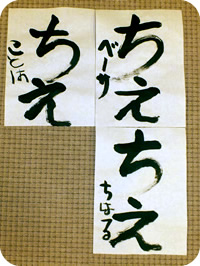 ちえ
ことは
ちえ
べーサ
ちえ
ちはる